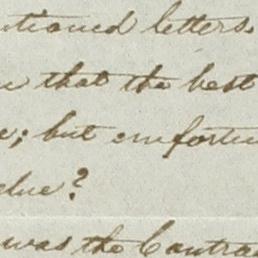 ntioned letters.
that the best
e; but unfortun
lue?
was the Contrac